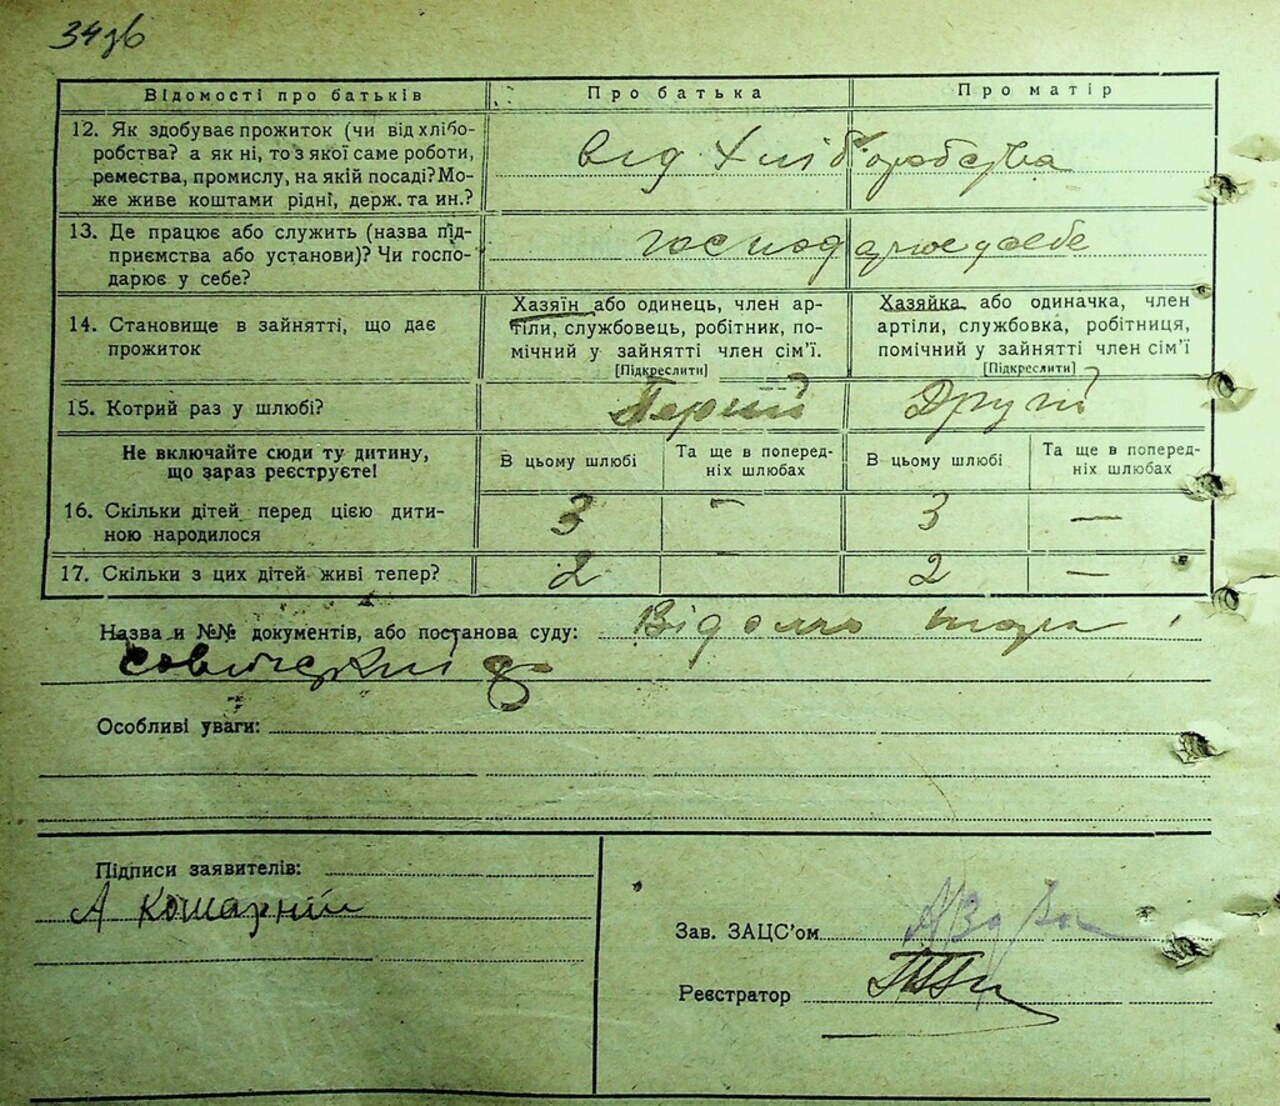 34зв
Відомості про батьків
Про батька
Про матір
12. Як здобуває прожиток (чи від хлібо-
робства? а як ні, то з якої саме роботи,
ремества, промислу, на якій посаді? Мо-
же живе коштами рідні, держ. та ин.?
від хліборобства
13. Де працює або служить (назва під-
приємства або установи)? Чи госпо-
дарює у себе?
господарює у себе
14. Становище в зайнятті, що дає
прожиток
Хазяїн або одинець, член ар-
тіли, службовець, робітник, по-
мічний у зайнятті член сім'ї.
[Підкреслити]
Хазяйка або одиначка, член
артіли, службовка, робітниця,
помічний у зайнятті член сім'ї
[Підкреслити]
15. Котрий раз у шлюбі?
Перший
Другий
Не включайте сюди ту дитину,
що зараз реєструєте!
В цьому шлюбі
Та ще в поперед-
ніх шлюбах
В цьому шлюбі
Та ще в поперед-
ніх шлюбах
16. Скільки дітей перед цією дити-
ною народилося
3 - 3 —
17. Скільки з цих дітей живі тепер?
2 - 2 —
Назва и №№ документів, або постанова суду:
Особливі уваги:
Підписи заявителів:
А Кошарний
Зав. ЗАЦС'ом
Реєстратор